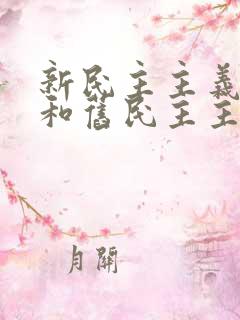 新民主主義
和舊民主主
月關